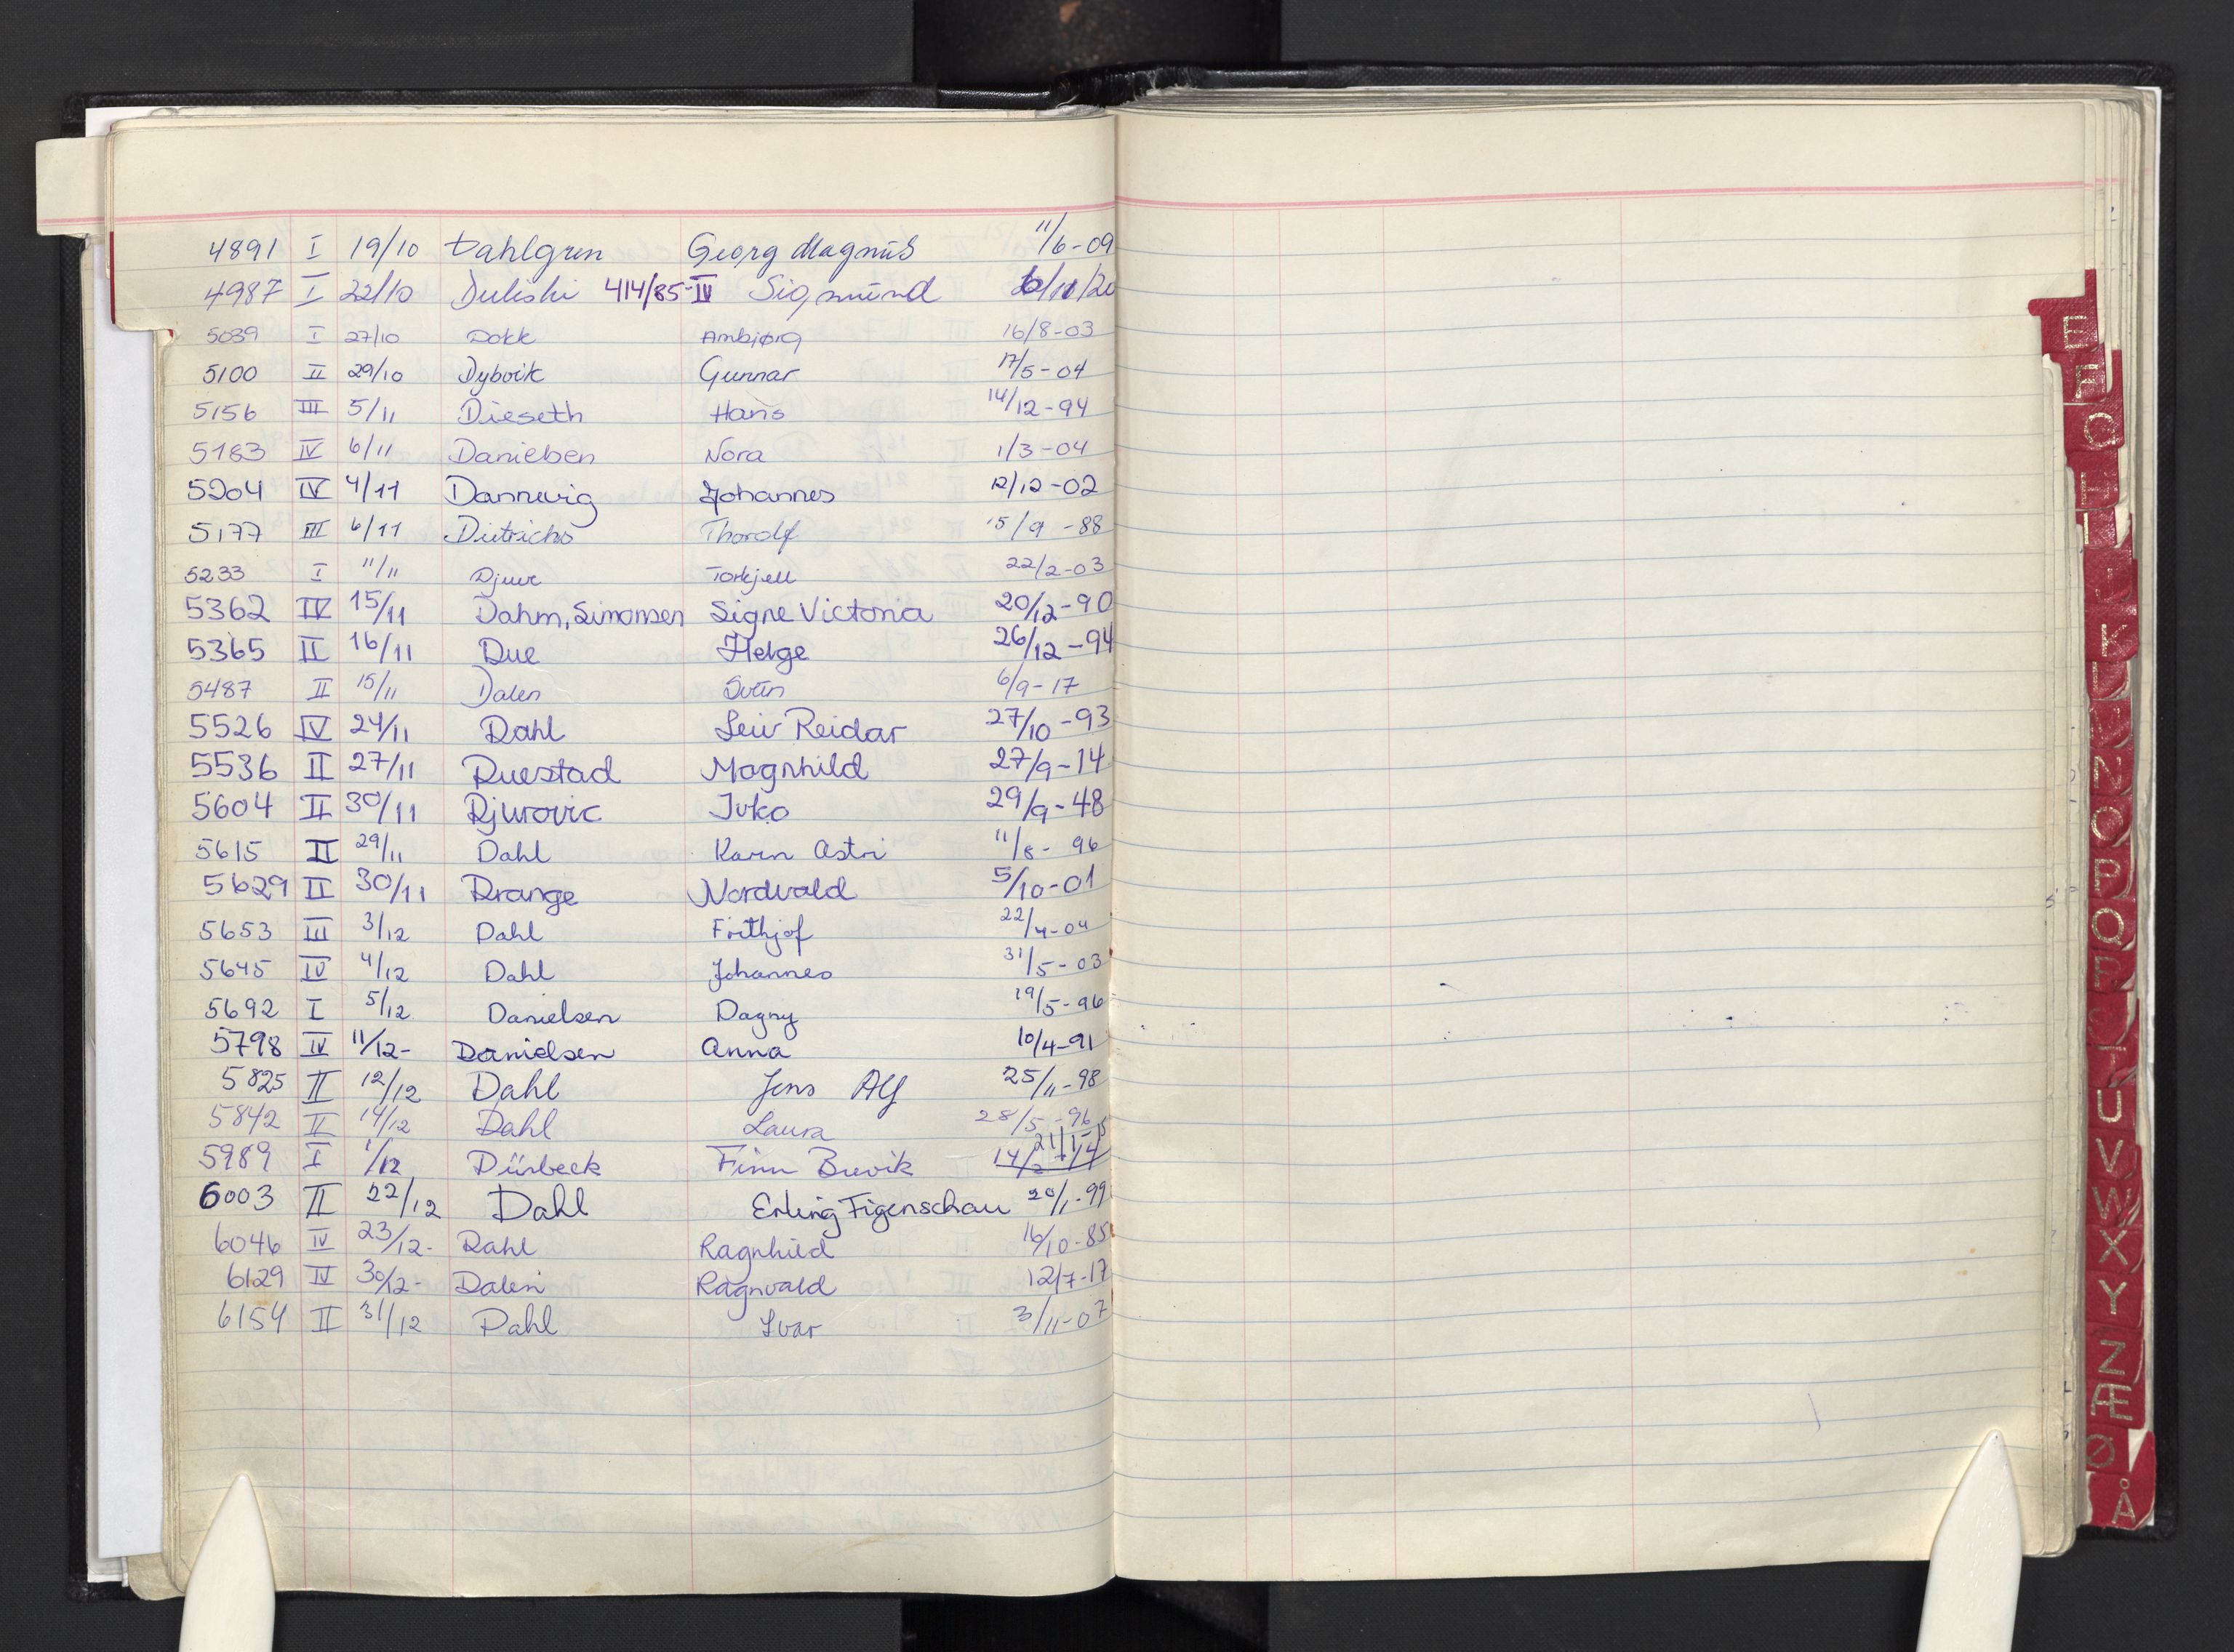 4891 I 19/10 Dahlgren Georg Magnus 11/6-09
4987 I 22/10 414/85-IV Sigmund
5039 I 27/10 Dokk Ambjørg 16/8-03
5100 II 29/10 Dybvik Gunnar 17/5-04
5156 III 5/11 Dieseth Hans 14/12-94
5183 IV 6/11 Danielsen Nora 1/3-04
5204 IV 4/11 Dannevig Johannes 12/12-02
5177 III 6/11 Dietrichs Thorolf 15/9-88
5233 I 11/11 Djuve Torkjell 22/2-03
5362 IV 15/11 Dahm, Simonsen Signe Victoria 20/12-90
5365 II 16/11 Due Helge 26/12-94
5487 II 15/11 Dalen Svein 6/9-17
5526 IV 24/11 Dahl Leiv Reidar 27/10-93
5536 II 27/11 Duestad Magnhild 27/9-14
5604 II 30/11 Djurovic Ivko 29/9-48
5615 II 29/11 Dahl Karin Astri 11/8-96
5629 II 30/11 Drange Nordvald 5/10-01
5653 III 3/12 Dahl Frithjof 22/4-04
5645 IV 4/12 Dahl Johannes 31/5-03
5692 I 5/12 Danielsen Dagny 19/5-96
5798 IV 11/12- Danielsen Anna 10/4-91
5825 II 12/12 Dahl Jens Alf 25/11-98
5842 II 14/12 Dahl Laura 28/5-96
5989 I 1/12 Dürbeck Finn Brevik
6003 II 22/12 Dahl Erling Figenschau 20/1-99
6046 IV 23/12- Dahl Ragnhild 16/10-85
6129 IV 30/12- Dalen Ragnvald 12/7-17
6154 II 31/12 Dahl Ivar 3/11-07
E
F
G
H
I
J
K
L
M
N
O
P
Q
R
S
T
U
V
W
X
Y
Z
Æ
Ø
Å